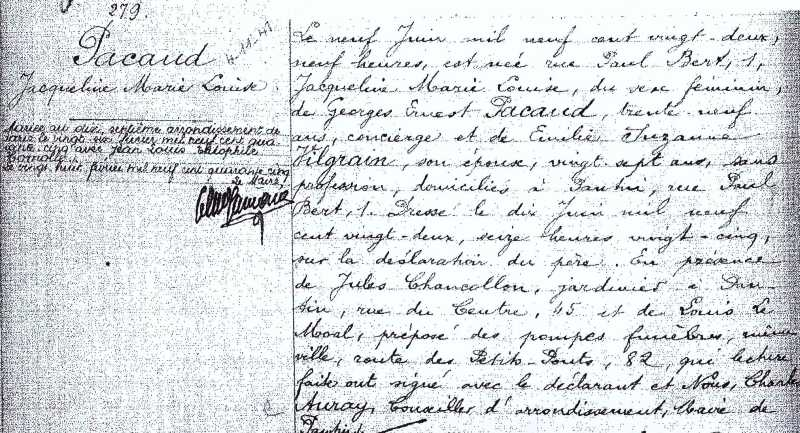 279.
Pacaud
Jacqueline Marie Louise
4-11-41
Mariée au dix septième arrondissement de
Paris le vingt six février mil neuf cent qua
rante cinq avec Jean Louis Théophile
Le vingt huit février mil neuf cent quarante cinq
Le Maire
Le neuf Juin mil neuf cent vingt-deux,
neuf heures, est née rue Paul Bert, 1,
Jacqueline Marie Louise, du sexe féminin,
de Georges Ernest Pacaud, trente neuf
ans, concierge et de Emilie Suzanne
Vilgrain, son épouse, vingt sept ans, sans
profession, domiciliés à Pantin, rue Paul
Bert, 1. Dressé le dix Juin mil neuf
cent vingt-deux, seize heures vingt-cinq,
sur la déclaration du père. En présence
de Jules Chancollon, jardinier à Pan-
tin, rue du Centre, 45 et de Louis Le
Moal, préposé des pompes funèbres, même
ville, route des Petits-Ponts, 82, qui lecture
faite ont signé avec le déclarant et Nous, Charles
Auray, Conseiller d'arrondissement, Maire de
Pantin.